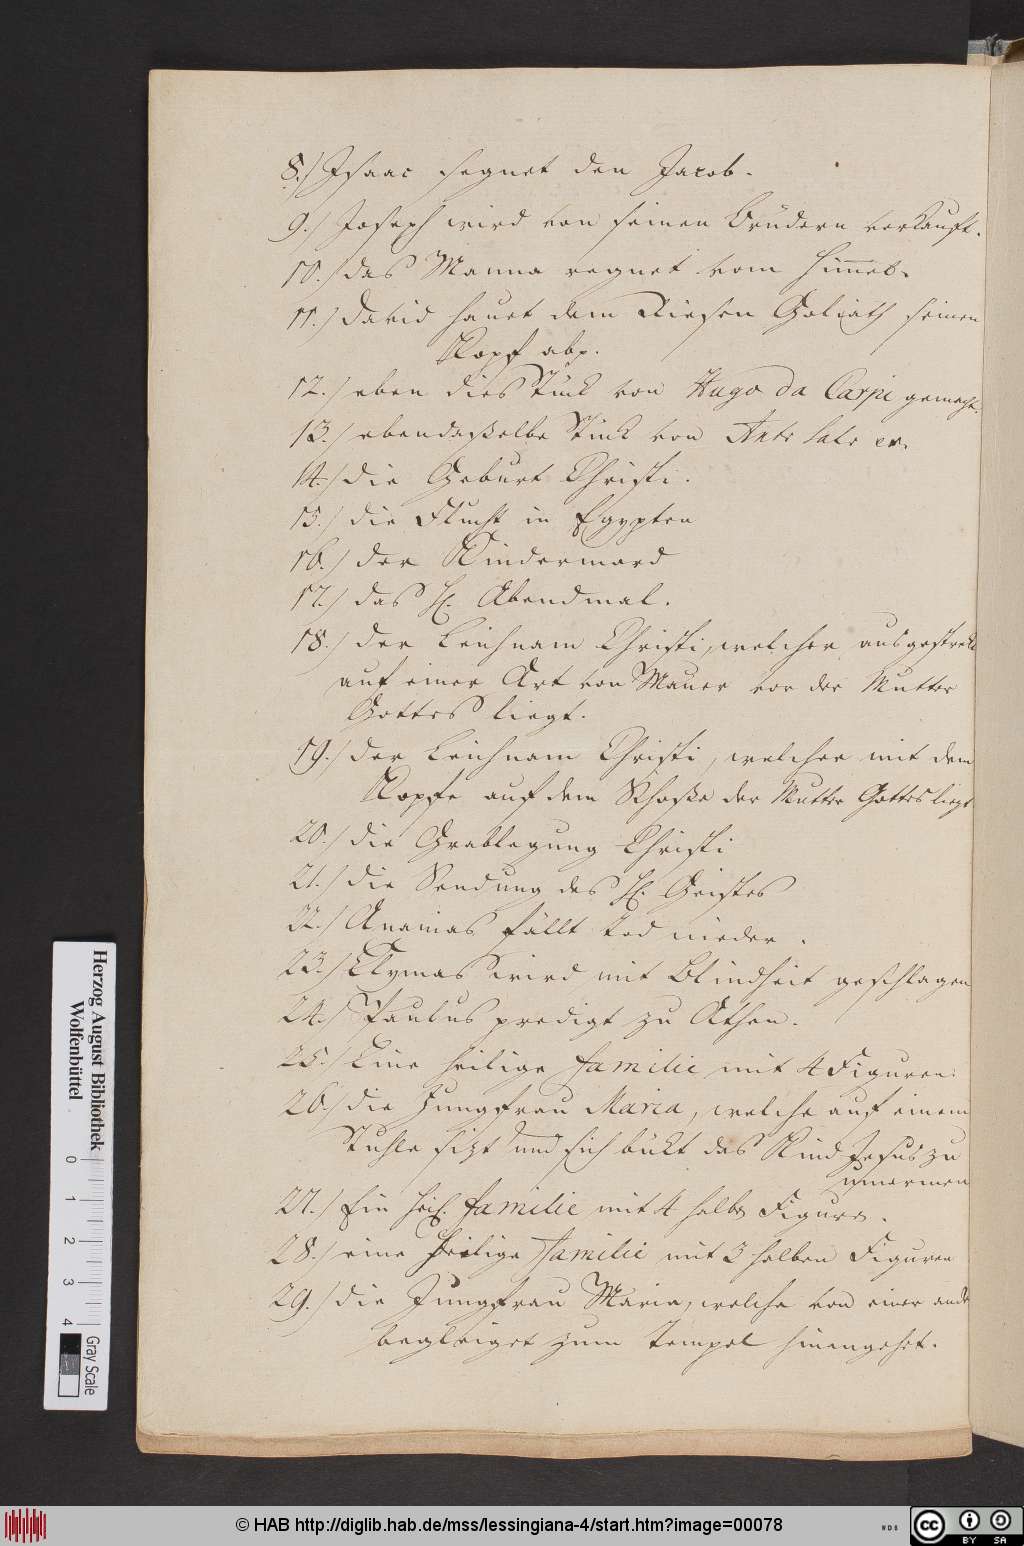 8.) Isaac segnet den Jacob.
9.) Joseph wird von seinen Brüdern verkauft.
10.) das Manna regnet vom Himel.
11.) David hauet dem Riesen Goliath seinen
Kopf ab.
12.) eben dies Stück von Hugo da Carpi gemacht.
13.) ebendasselbe Stück von
14.) die Geburt Christi.
15.) die Flucht in Egypten
16.) der Kindermord
17.) das H. Abendmal.
18.) der Leichnam Christi, welcher ausgestreckt
auf einer Art von Mauer vor der Mutter
Gottes liegt.
19.) der Leichnam Christi, welcher mit dem
Kopfe auf dem Schoße der Mutter Gottes liegt
20.) die Grablegung Christi
21.) die Sendung des H. Geistes
22.) Ananias fällt tod nieder.
23.) Elymas wird mit Blindheit geschlagen
24.) Paulus predigt zu Athen.
25.) Eine heilige familie mit 4 Figuren.
26.) die Jungfrau Maria, welche auf einem
Stuhle sizt und sich bükt das Kind Jesus zu
umarmen
27.) Ein heil. familie mit 4 halbe Figuren.
28.) eine heilige familie mit 3 halben Figuren
29.) die Jungfrau Maria, welche von einer
begleitet zum Tempel hinengehet.
Herzog August Bibliothek
Wolfenbüttel
0 1 2 3 4
Gray Scale
© HAB http://diglib.hab.de/mss/lessingiana-4/start.htm?image=00078
WDB
cc BY SA